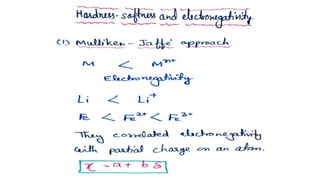 Hardness-softness and electronegativity
(1) Mulliken-Jaffe' approach
M < Mⁿ⁺
Electronegativity
Li < Li⁺
Fe < Fe²⁺ < Fe³⁺
They correlated electronegativity
with partial charge on an atom.
χ = a + bδ